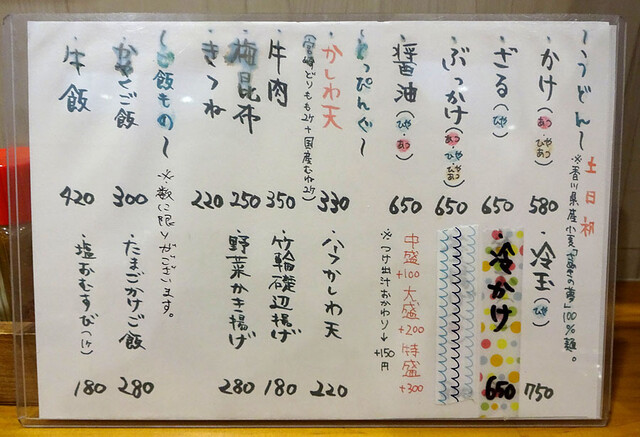 ～うどん～ 土日祝
※香川県産小麦「さぬきの夢」100％麺。
・かけ（あつ・ひやあつ） 580
・冷玉（ひや） 750
・ざる（ひや） 650
・冷かけ 650
・ぶっかけ（あつ・ひや・ひやあつ） 650
・醤油（ひや・あつ） 650
中盛+100 大盛+200 特盛+300
※つけ出汁おかわり→+150円
～とっぴんぐ～
・かしわ天 330
（宮崎どりもも2ケ+国産むね2ケ）
・ハーフかしわ天 220
・牛肉 350
・竹輪磯辺揚げ 180
・梅昆布 250
・野菜かき揚げ 280
・きつね 220
～ご飯もの～ ※数に限りがございます。
・かやくご飯 300
・たまごかけご飯 280
・牛飯 420
・塩おむすび（1ケ） 180